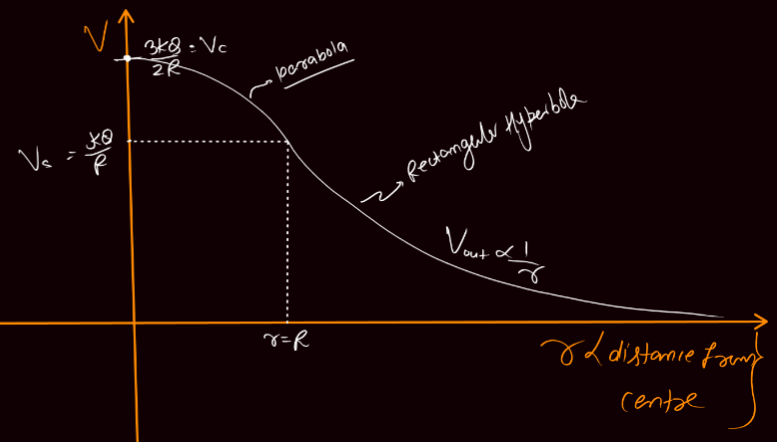 V
3KQ/2R = Vc
parabola
Vs = KQ/R
Rectangular Hyperbola
Vout ∝ 1/r
r=R
r { distance from
centre }